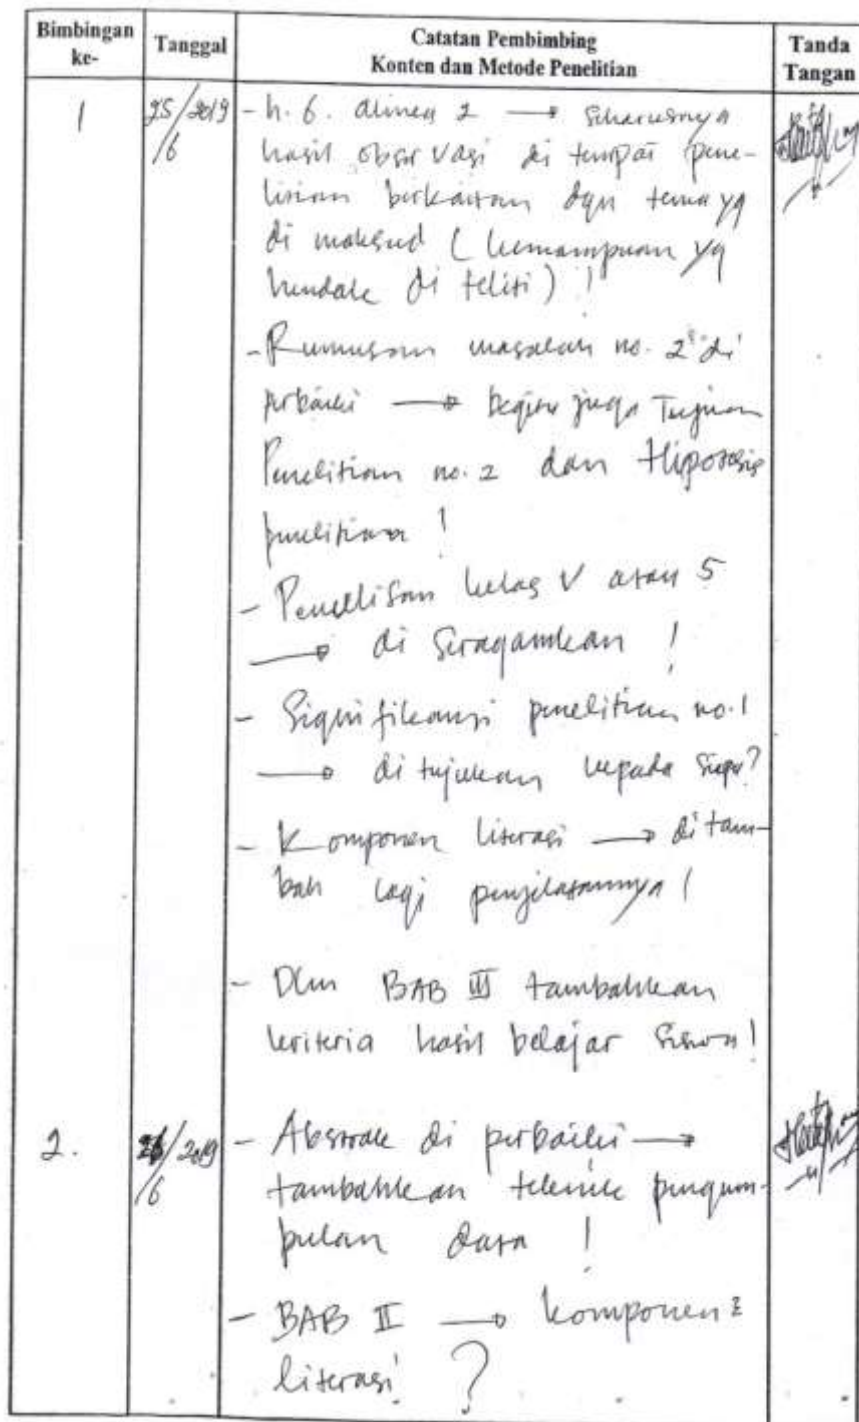 Bimbingan ke-
Tanggal
Catatan Pembimbing
Konten dan Metode Penelitian
Tanda Tangan
1
25/2019
/6
- h. 6. alinea 2 → Seharusnya
hasil observasi di tempat pene-
litian berkaitan dgn tema yg
di maksud (kemampuan yg
hendak di teliti) !
- Rumusan masalah no. 2 di
perbaiki → begitu juga Tujuan
Penelitian no. 2 dan Hipotesis
penelitian !
- Penulisan kelas V atau 5
→ di Seragamkan !
- Signifikansi penelitian no. 1
→ di tujukan kepada siapa?
- Komponen literasi → di tam-
bah lagi penjelasannya !
- Dlm BAB III tambahkan
kriteria hasil belajar siswa !
2.
/2019
/6
- Abstrak di perbaiki →
tambahkan teknik pengum-
pulan data !
- BAB II → komponen2
literasi ?